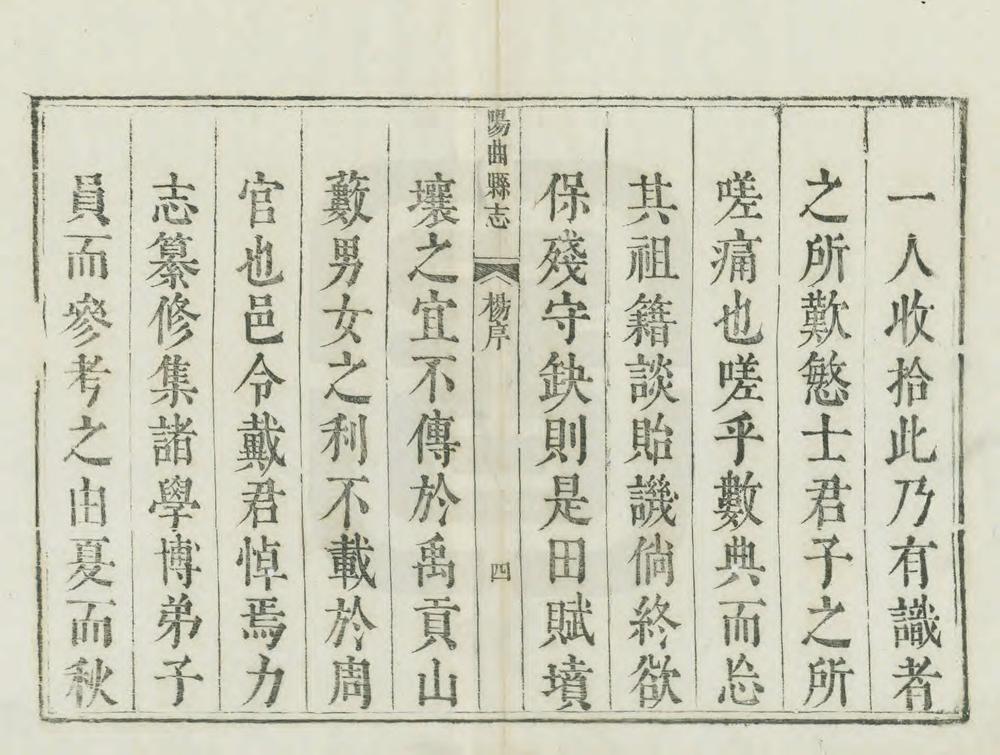 一人收拾此乃有識者
之所歎慜士君子之所
嗟痛也嗟乎數典而忘
其祖籍談貽譏倘終欲
保殘守缺則是田賦墳
陽曲縣志 楊序 四
壤之宜不傳於禹貢山
藪男女之利不載於周
官也邑令戴君悼焉力
志纂修集諸學博弟子
員而參考之由夏而秋